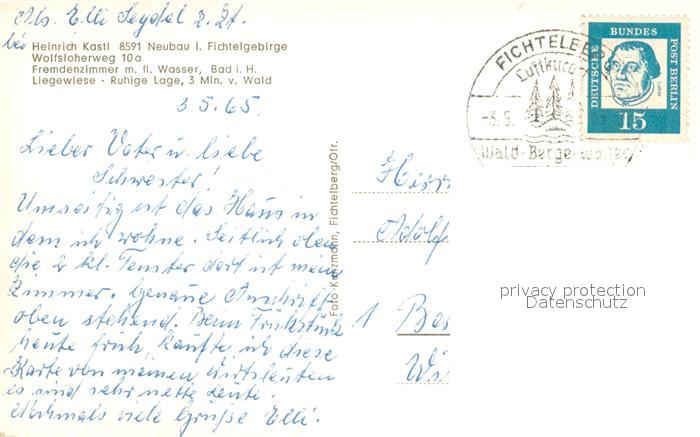 Abs. Elli Seydel z. Zt.
bei Heinrich Kastl 8591 Neubau i. Fichtelgebirge
Wolfsloherweg 10a
Fremdenzimmer m. fl. Wasser, Bad i. H.
Liegewiese · Ruhige Lage, 3 Min. v. Wald
3.5.65.
Lieber Vater u. liebe
Schwester!
Umseitig ist das Haus in
dem ich wohne. Seitlich oben
die 2 kl. Fenster dort ist mein
Zimmer. Genaue Anschrift
oben stehend. Beim Frühstück
heute früh kaufte ich diese
Karte von meinen Wirtsleuten
es sind sehr nette Leute.
Nochmals viele Grüße Elli.
Foto-Katzmann, Fichtelberg/Ofr.
FICHTELBERG
Luftkurort
-3.5.
Wald-Berge-Wasser
DEUTSCHE BUNDESPOST BERLIN
Luther
15
Herrn
Adolf
1 Be
privacy protection
Datenschutz